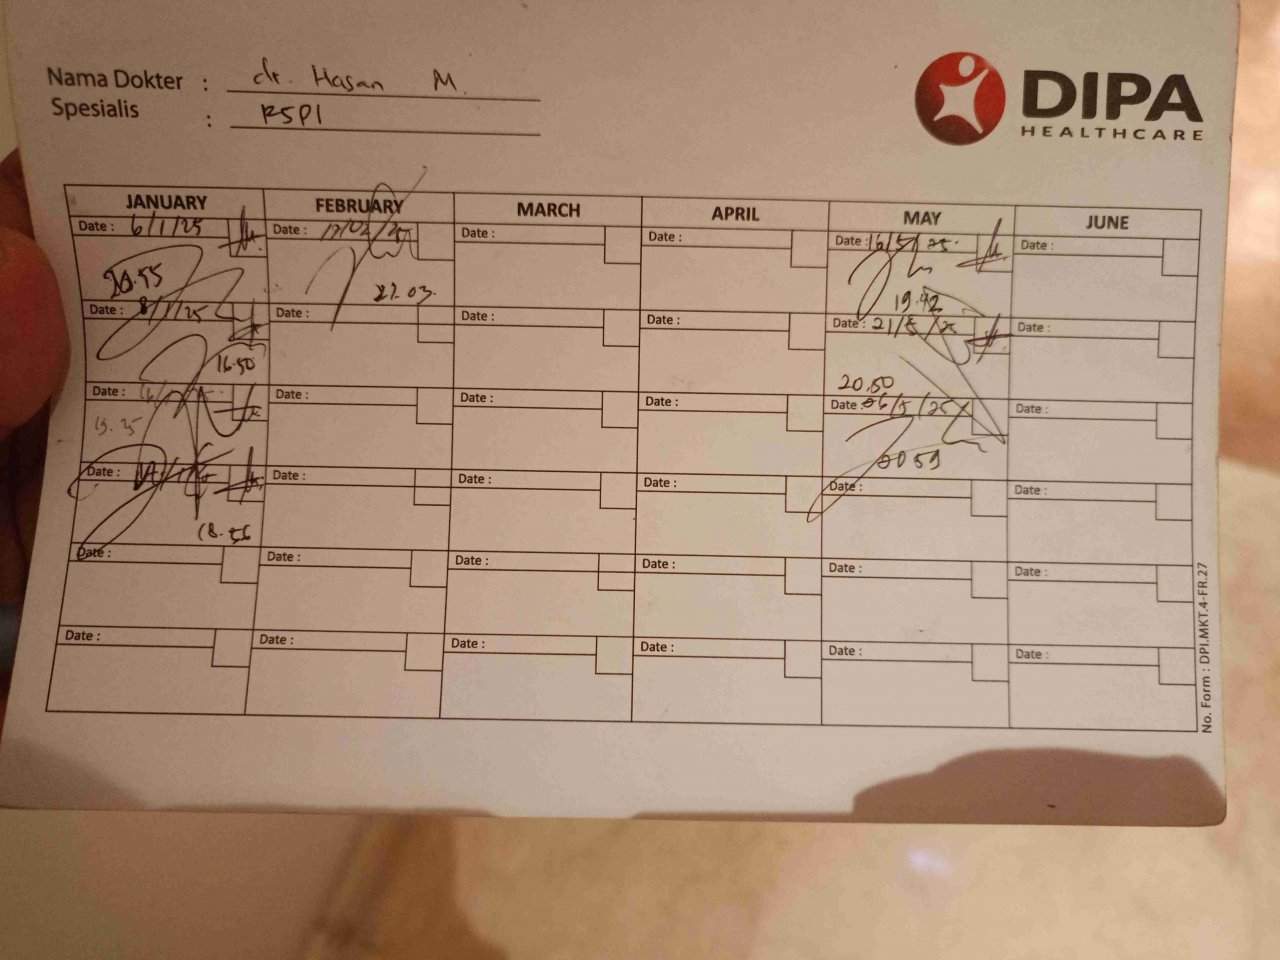 Nama Dokter : dr. Hasan M.
Spesialis : RSPI
DIPA
HEALTHCARE
JANUARY FEBRUARY MARCH APRIL MAY JUNE
Date : 6/1/25 Date : Date : Date : Date : 16/5/25 Date :
20.55 19.42
Date : 8/1/25 Date : Date : Date : Date : 21/5/25 Date :
16.50 20.50
Date : Date : Date : Date : Date : Date :
Date : Date : Date : Date : Date : Date :
18.56
Date : Date : Date : Date : Date : Date :
Date : Date : Date : Date : Date : Date :
No. Form : DPI.MKT.4-FR.27